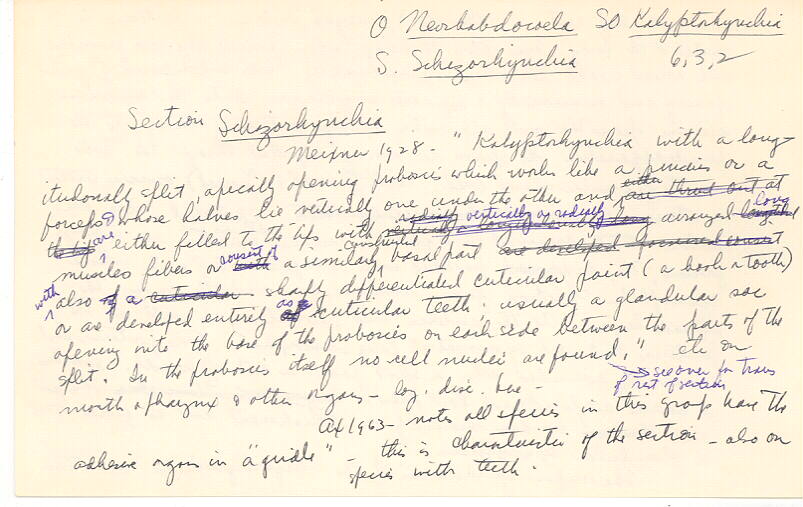 O Neorhabdocoela SO Kalyptorhynchia
S. Schizorhynchia 6,3,2
Section Schizorhynchia
Meixner 1928 - "Kalyptorhynchia with a long-
itudonally split, apically opening proboscis which works like a pincers or a
forceps whose halves lie vertically one under the other and either are thrust out at
the tip are either filled to the tips with radially vertically or radially arranged long
muscles fibers or consist of a similarly constructed basal part are developed
with also a cuticular sharply differentiated cuticular point (a hook or tooth)
or are developed entirely as cuticular teeth, usually a glandular sac
opening into the base of the proboscis on each side between the parts of the
split. In the proboscis itself no cell nuclei are found." etc on
mouth & pharynx & other organs - log. disc. here - → see over for trans
of rest of section
Ax 1963 - notes all species in this group have the
adhesive organ in "a girdle" - this is characteristic of the section - also on
species with teeth.